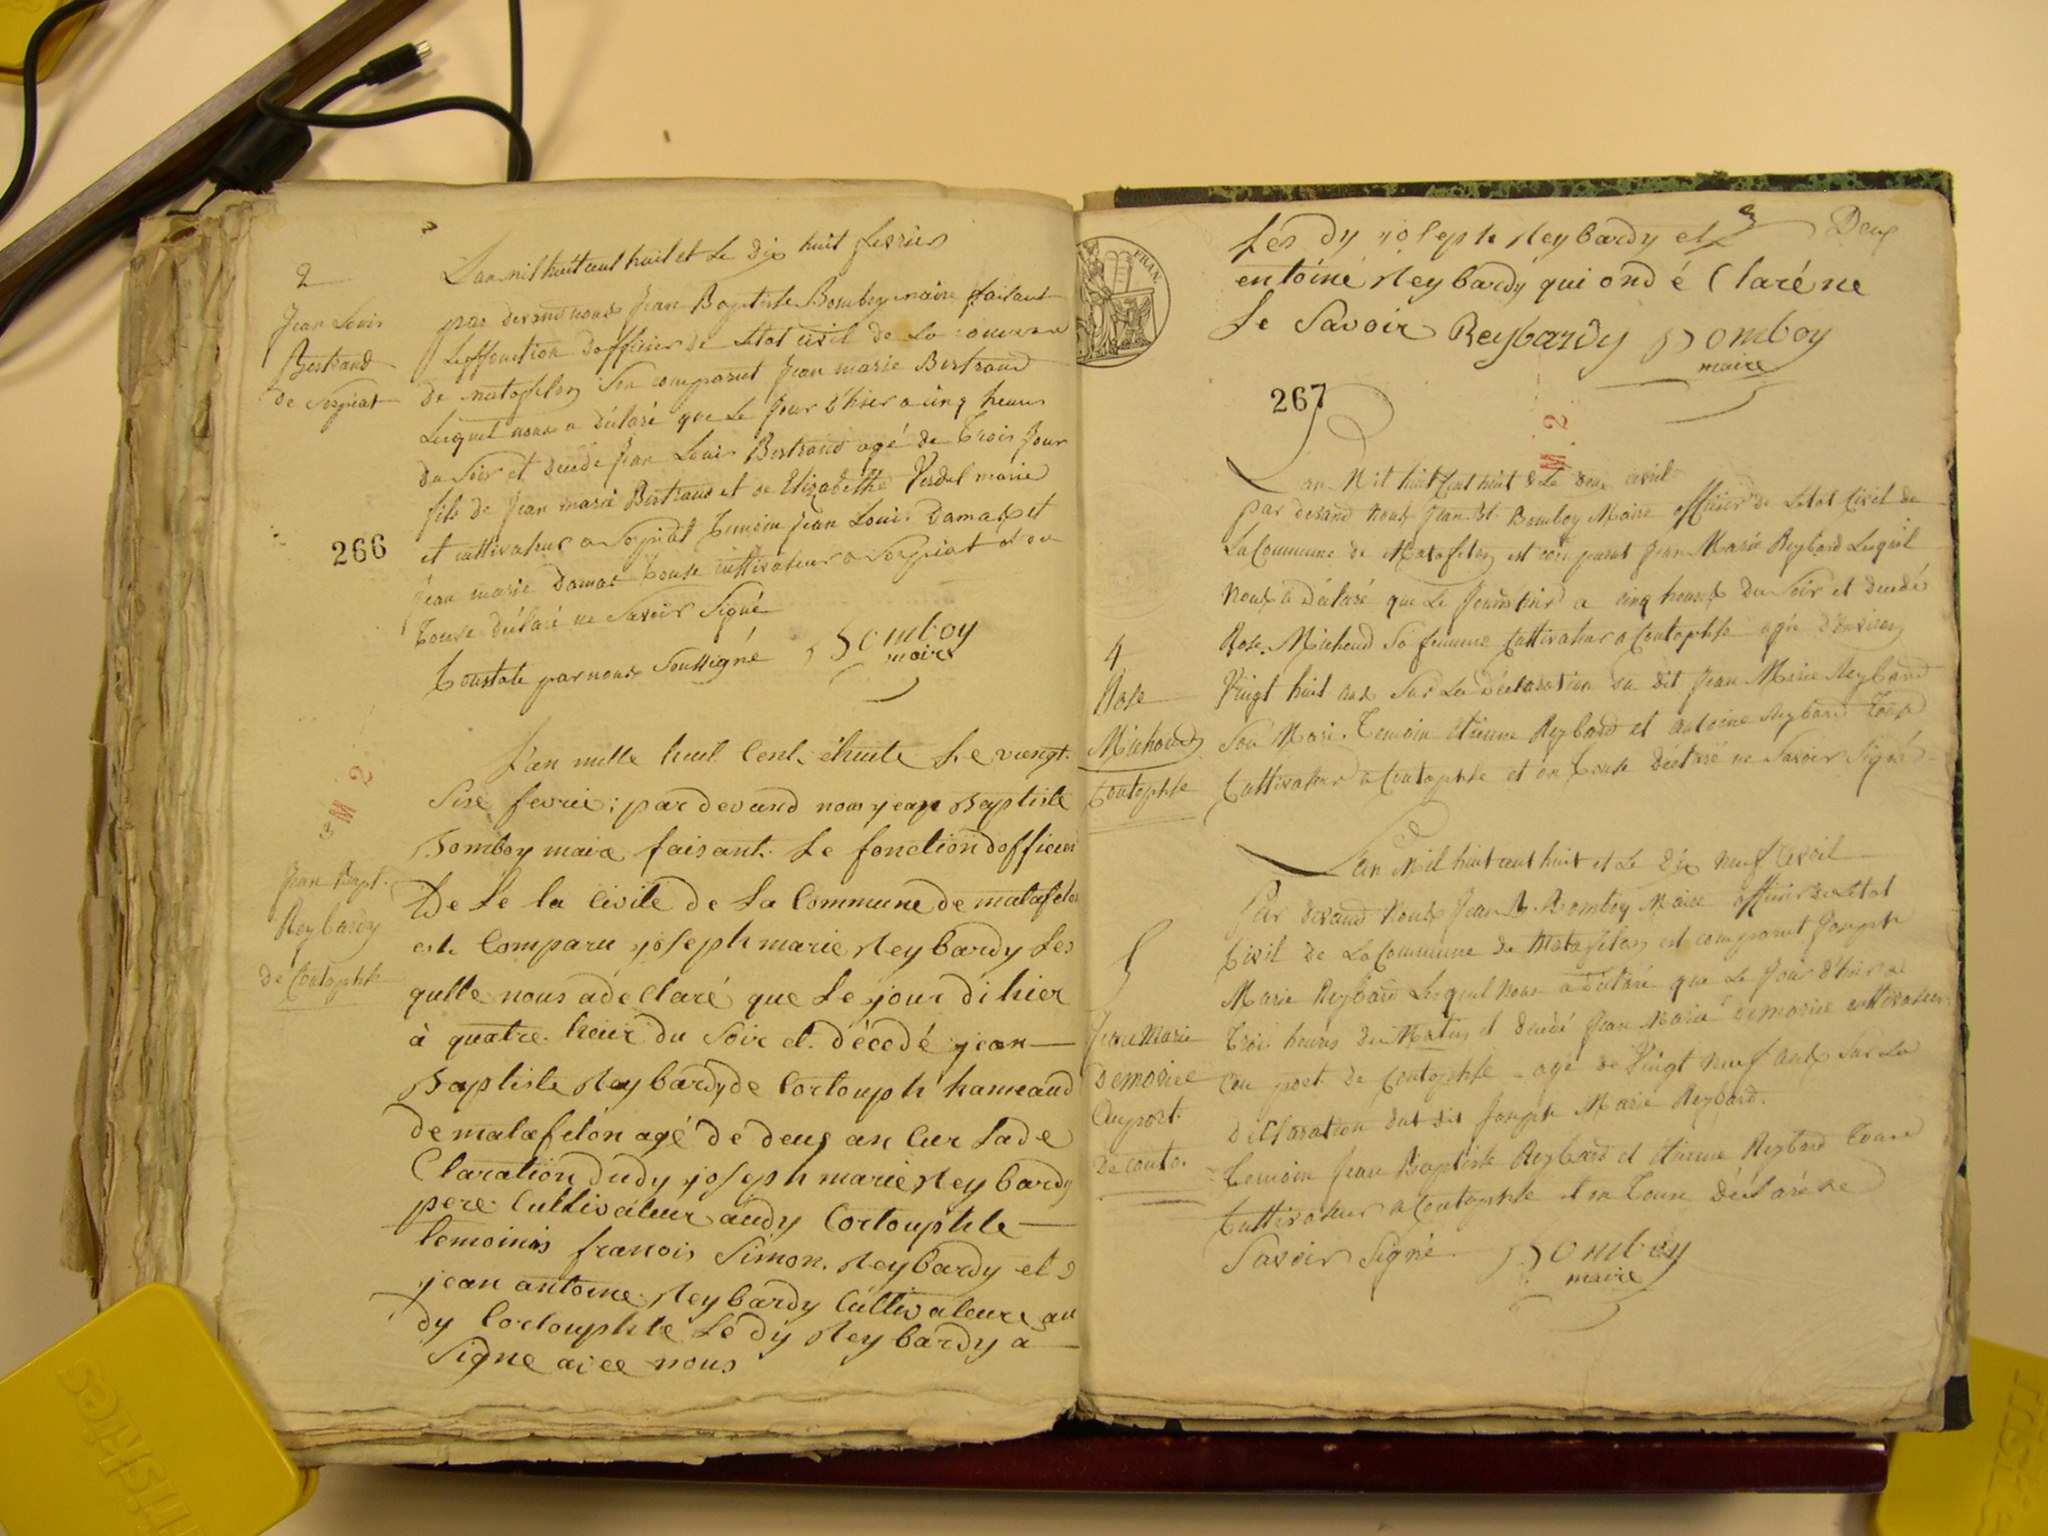 2
Jean Louis
Bertrand
de Sorpiat
L'an mil huit cent huit et Le dix huit fevrier
par devand nous Jean Baptiste Bomboy maire faisant
Les fonction d'officier de Letat civil de La comune
de matafelon Sen comparut Jean marie Bertrand
Lesquel nous a déclaré que Le Jour d'hier a cinq heures
du Soir et decedé Jean Louis Bertrand agé de Trois Jour
fils de Jean marie Bertrand et de Elizabethe marie
266
et cultivateur a Sorpiat Temoin Jean Louis Damas et
Jean marie Damas Touse cultivateur a Sorpiat et on
Touse déclaré ne Savoir Signé
Constate par nous Soussigné Bomboy
maire
M 2
3
Jean Bapt.
Reybardy
de Coutophle
L'an mille huit Cent é huite Le veingt
Sise fevrie; par devand nous jean Baptiste
Bomboy maire faisant Le fonction dofficier
De Le la Civile de La Commune de matafelon
est Comparu joseph marie Reybardy Les
qulle nous adeClaré que Le jour di hier
à quatre heur du Soir et décedé jean
Baptiste Reybardy de Cortouph hameaud
de matafelon agé de deus an Cur La de
Claration dudy joseph marie Reybardy
pere Cultivateur audy Cortouphle
temoinis francois Simon Reybardy et
jean antoine Reybardy Cultivateure au
dy Cortouphle Lédy Reybardy a
Signe avee nous
FRAN.
Deux
Les dy joseph Reybardy et
entoine Reybardy qui ond é Claré ne
Le Savoir Reybardy Bomboy
maire
267
M 2
4
Rose
Michoud
Coutophle
L'an Mil huit Cent huit & Le deux avril
par devand Nous Jean Bt Bomboy Maire officier de Letat Civil de
La Commune de Matafelon est comparut Jean Marie Reybard Lesquel
Nous a Déclaré que Le Jour d'hier a cinq heures du Soir et decedé
Rose Michoud Sa femme Cultivateur a Coutophle agée d'environ
Vingt huit ans Sur La Déclaration du dit Jean Marie Reybard
Son Mari. Temoin étienne Reybard et antoine Reybard Tous
Cultivateur a Coutophle et on Touse Déclaré ne Savoir Signé
5
Jean Marie
Demornee
Au port
de couto.
L'an Mil huit cent huit et Le dix neuf avril
Par devand Nous Jean B. Bomboy Maire officier de Letat
Civil de La Commune de Matafelon est comparut Joseph
Marie Reybard Lesquel Nous a déclaré que Le Jour d'hier a
Trois heures du Matin et decedé Jean Marie cultivateur
au port de Coutophle agé de Vingt neuf ans Sur La
Déclaration dut dit Joseph Marie Reybard.
Temoin Jean Baptiste Reybard et étienne Reybard Touse
Cultivateur a Coutophle et on Touse Déclaré ne
Savoir Signé Bomboy
maire